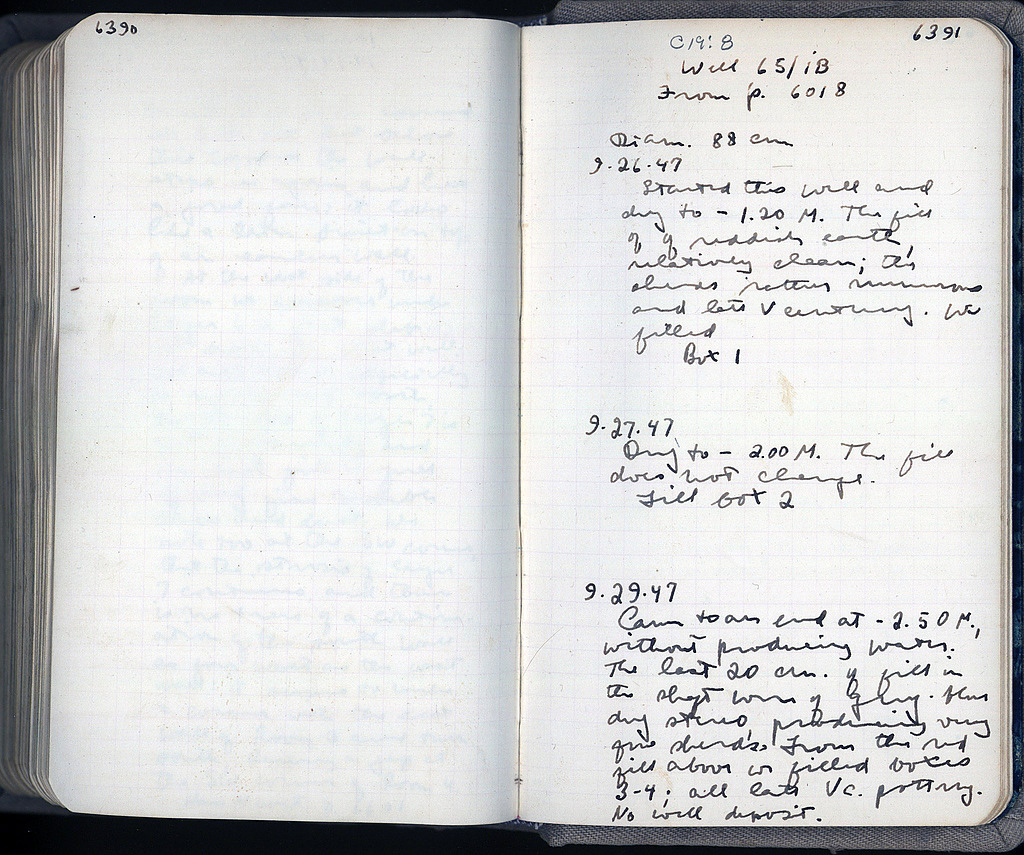 6390
6391
C 19:8
Well 65/1B
From p. 6018
Diam. 88 cm
9-26-47
Started this well and
dug to - 1.20 M. The fill
of reddish earth,
relatively clean; the
sherds rather numerous
and late V century. We
filled
Box 1
9-27-47
Dug to - 2.00 M. The fill
does not change.
Fill box 2
9-29-47
Came to an end at - 2.50 M.,
without producing water.
The last 20 cm. of fill in
the shaft were of
dug stereo, producing very
few sherds. From the red
fill above we filled boxes
3-4; all late V c. pottery.
No well deposit.